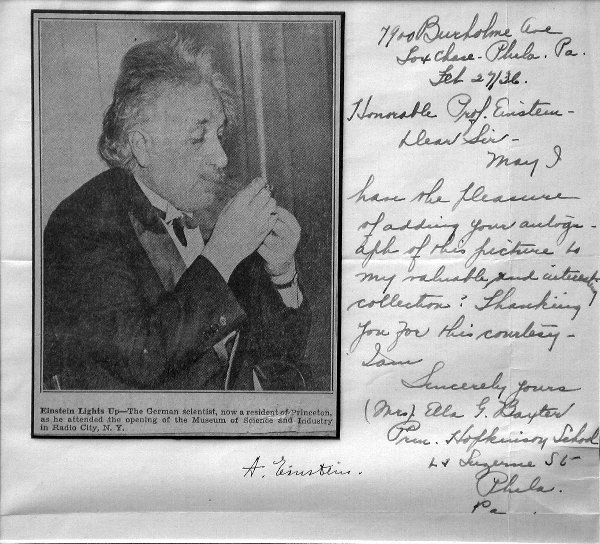 Einstein Lights Up—The German scientist, now a resident of Princeton,
as he attended the opening of the Museum of Science and Industry
in Radio City, N. Y.
A. Einstein.
7900 Burholme Ave
Fox Chase - Phila. Pa.
Feb 27/36.
Honorable Prof. Einstein -
Dear Sir -
May I
have the pleasure
of adding your autogr-
aph of this picture to
my valuable, and interesting
collection? Thanking
you for this courtesy -
I am
Sincerely yours
(Mrs) Ella G. Baxter
Prin. Hopkinson School
L & Luzerne St
Phila.
Pa